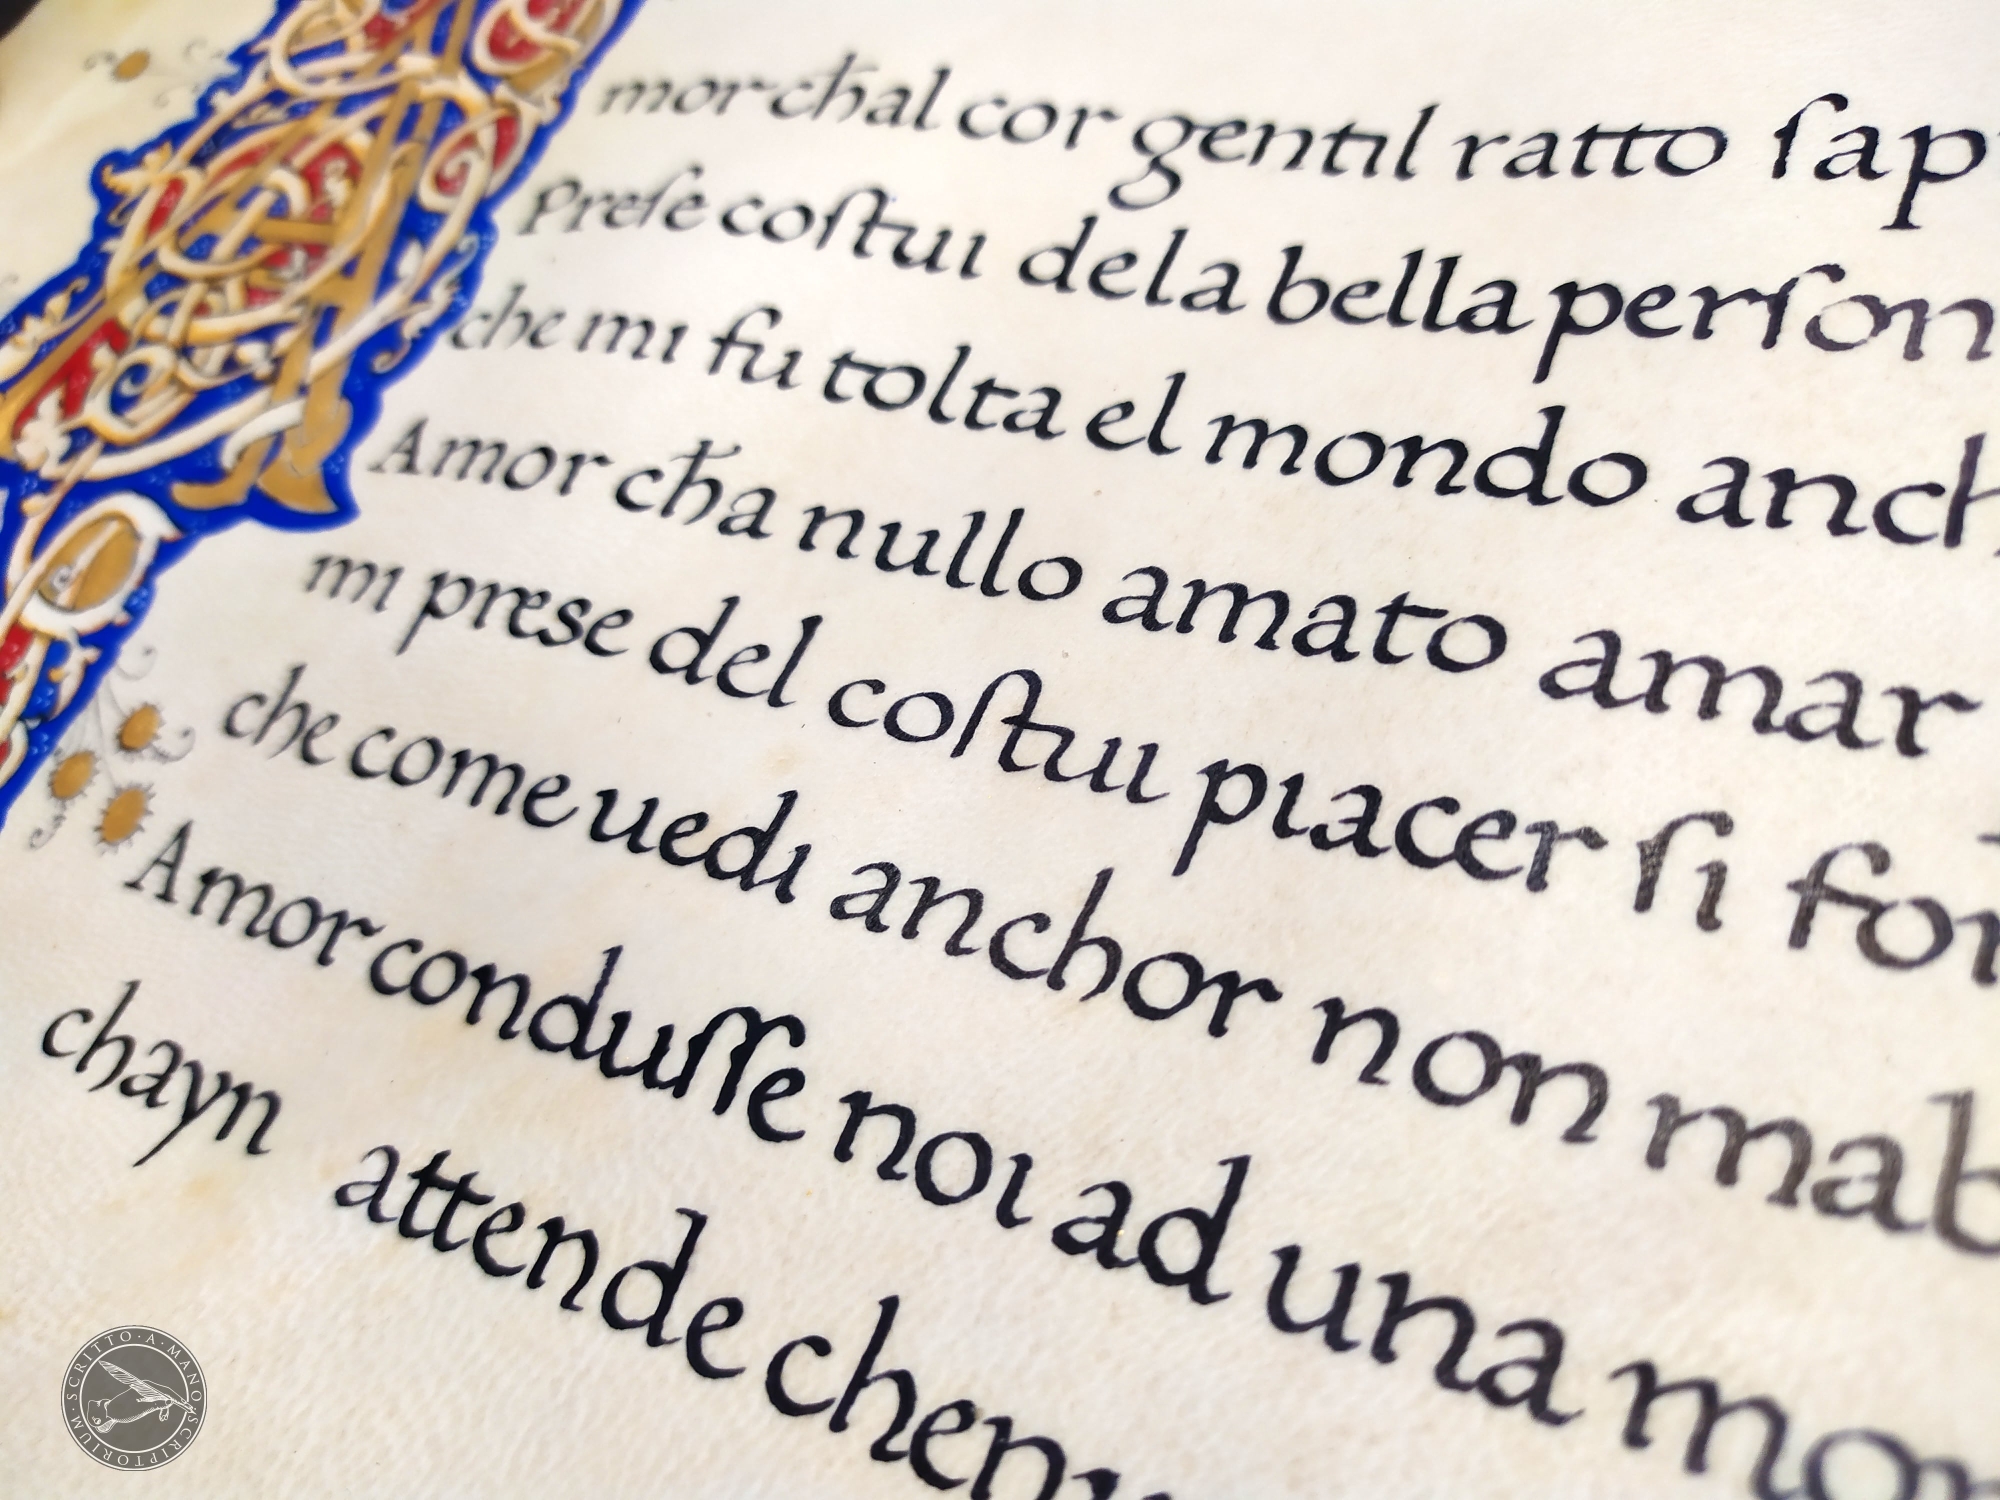 Amor chal cor gentil ratto ſap
Preſe coſtui dela bella perſon
che mi fu tolta el mondo anch
Amor cha nullo amato amar
mi prese del coſtui piacer ſi for
che come uedi anchor non mab
Amor conduſſe noi ad una mor
chayn attende chen
SCRITTO·A·MANO·SCRIPTORIUM